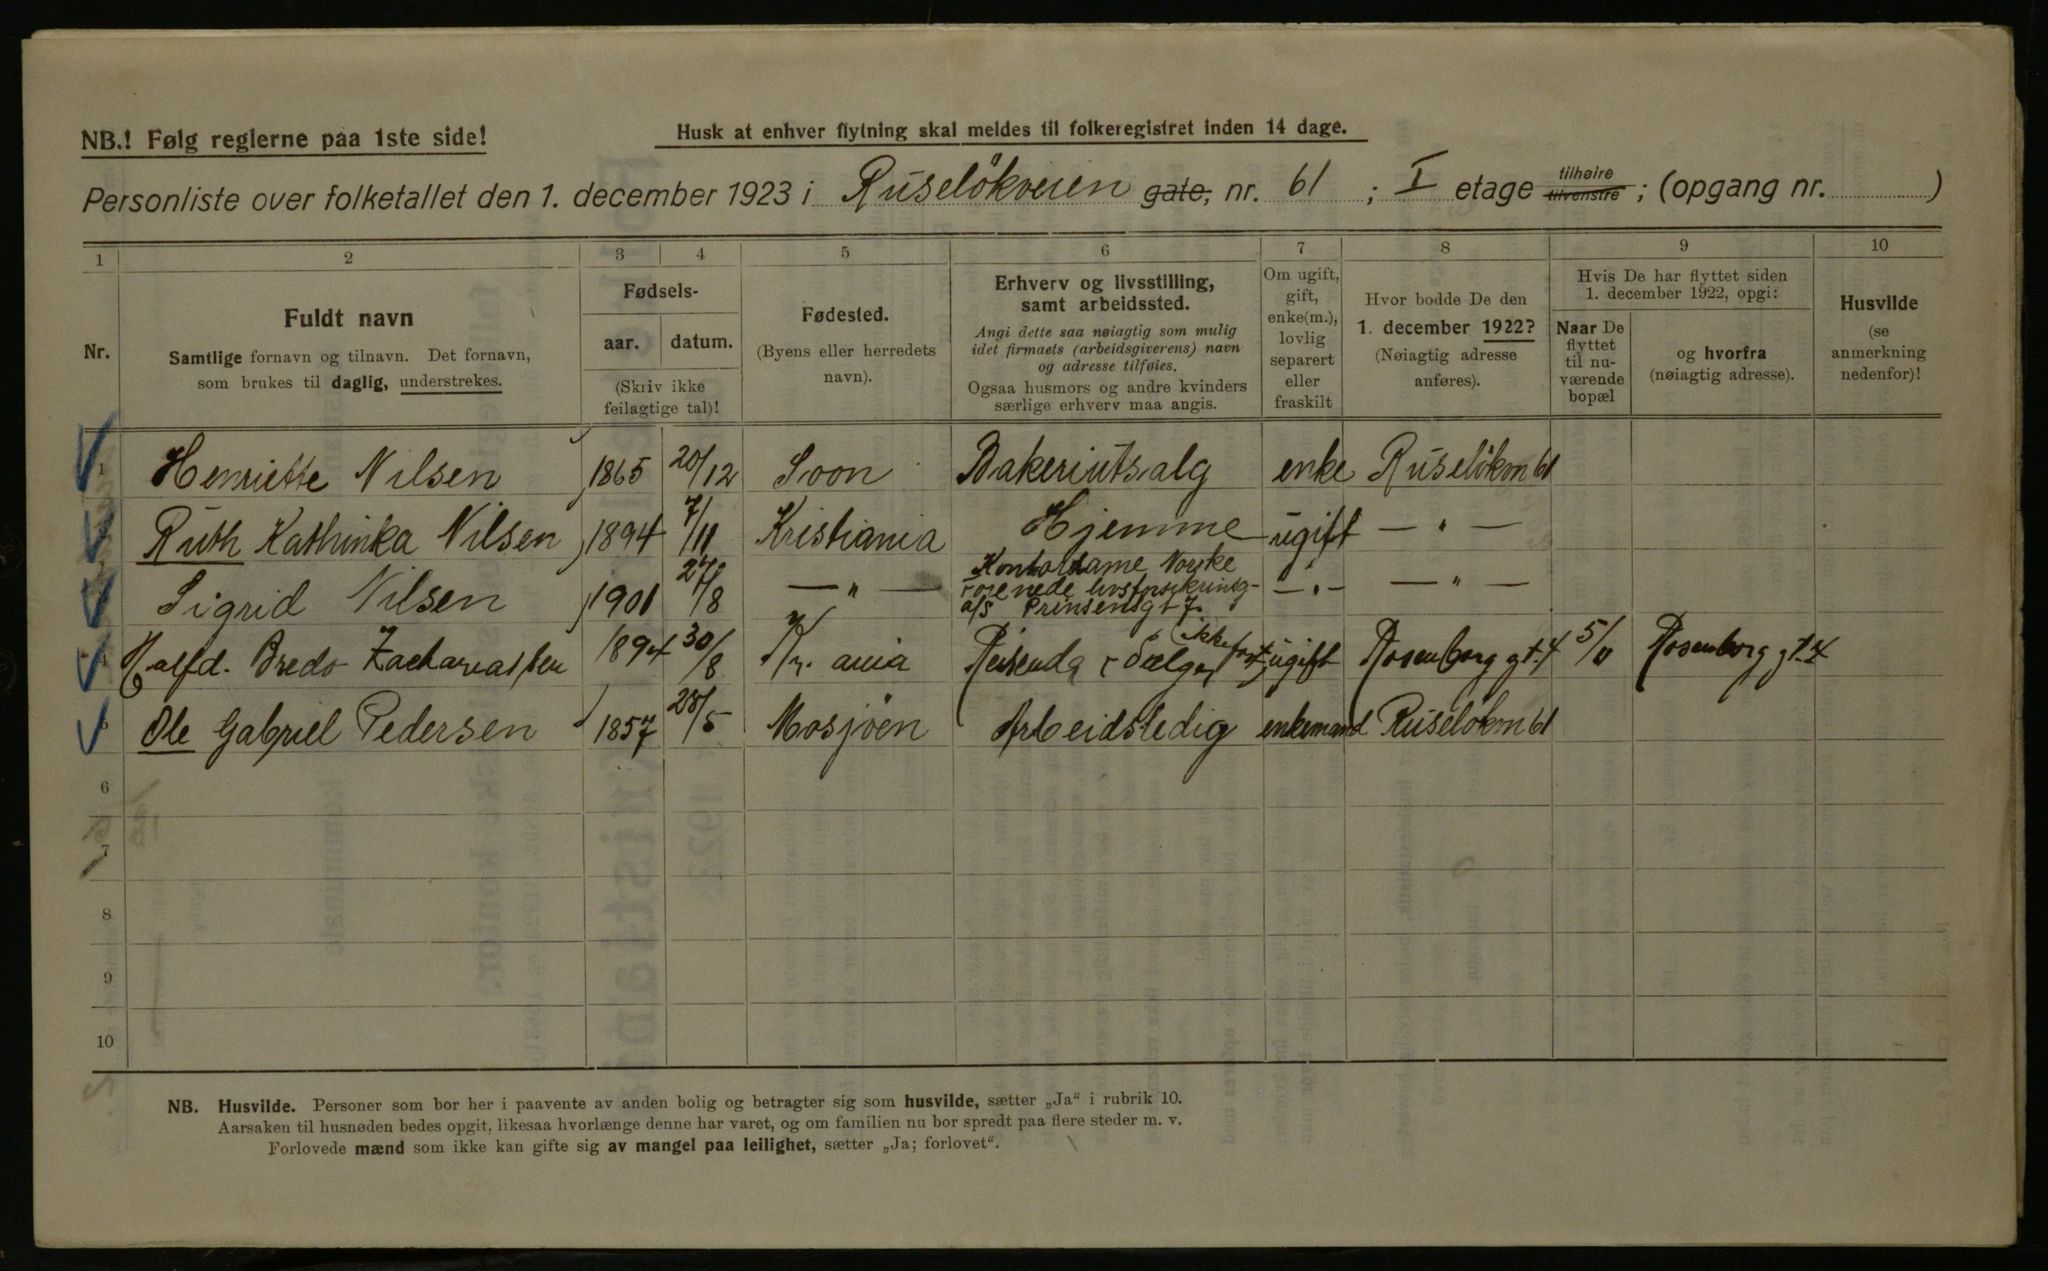 NB.! Følg reglerne paa 1ste side!
Husk at enhver flytning skal meldes til folkeregistret inden 14 dage.
Personliste over folketallet den 1. december 1923 i Ruseløkveien gate, nr. 61 ; I etage tilhøire tilvenstre ; (opgang nr. )
1 2 3 4 5 6 7 8 9 10
Nr.
Fuldt navn
Samtlige fornavn og tilnavn. Det fornavn,
som brukes til daglig, understrekes.
Fødsels-
aar. datum.
(Skriv ikke
feilagtige tal)!
Fødested.
(Byens eller herredets
navn).
Erhverv og livsstilling,
samt arbeidssted.
Angi dette saa nøiagtig som mulig
idet firmaets (arbeidsgiverens) navn
og adresse tilføies.
Ogsaa husmors og andre kvinders
særlige erhverv maa angis.
Om ugift,
gift,
enke(m.),
lovlig
separert
eller
fraskilt
Hvor bodde De den
1. december 1922?
(Nøiagtig adresse
anføres).
Hvis De har flyttet siden
1. december 1922, opgi:
Naar De
flyttet
til nu-
værende
bopæl
og hvorfra
(nøiagtig adresse).
Husvilde
(se
anmerkning
nedenfor)!
1 Henriette Nilsen 1865 20/12 Soon Bakeriutsalg enke Ruseløkvn 61
2 Ruth Kathinka Nilsen 1894 7/11 Kristiania Hjemme ugift — " —
3 Sigrid Nilsen 1901 27/8 — " — Kontordame Norske
forenede livsforsikrings-
a/s Prinsensgt 7. — " — — " —
4 Halfd. Bredo Zachariassen 1894 30/8 Kr. ania Reisende Sælger ikke fast ugift Rosenborg gt. 4 5/11 Rosenborg gt. 4
5 Ole Gabriel Pedersen 1857 28/5 Mosjøen Arbeidsledig enkemand Ruseløkvn 61
6
7
8
9
10
NB. Husvilde. Personer som bor her i paavente av anden bolig og betragter sig som husvilde, sætter „Ja“ i rubrik 10.
Aarsaken til husnøden bedes opgit, likesaa hvorlænge denne har varet, og om familien nu bor spredt paa flere steder m. v.
Forlovede mænd som ikke kan gifte sig av mangel paa leilighet, sætter „Ja; forlovet“.